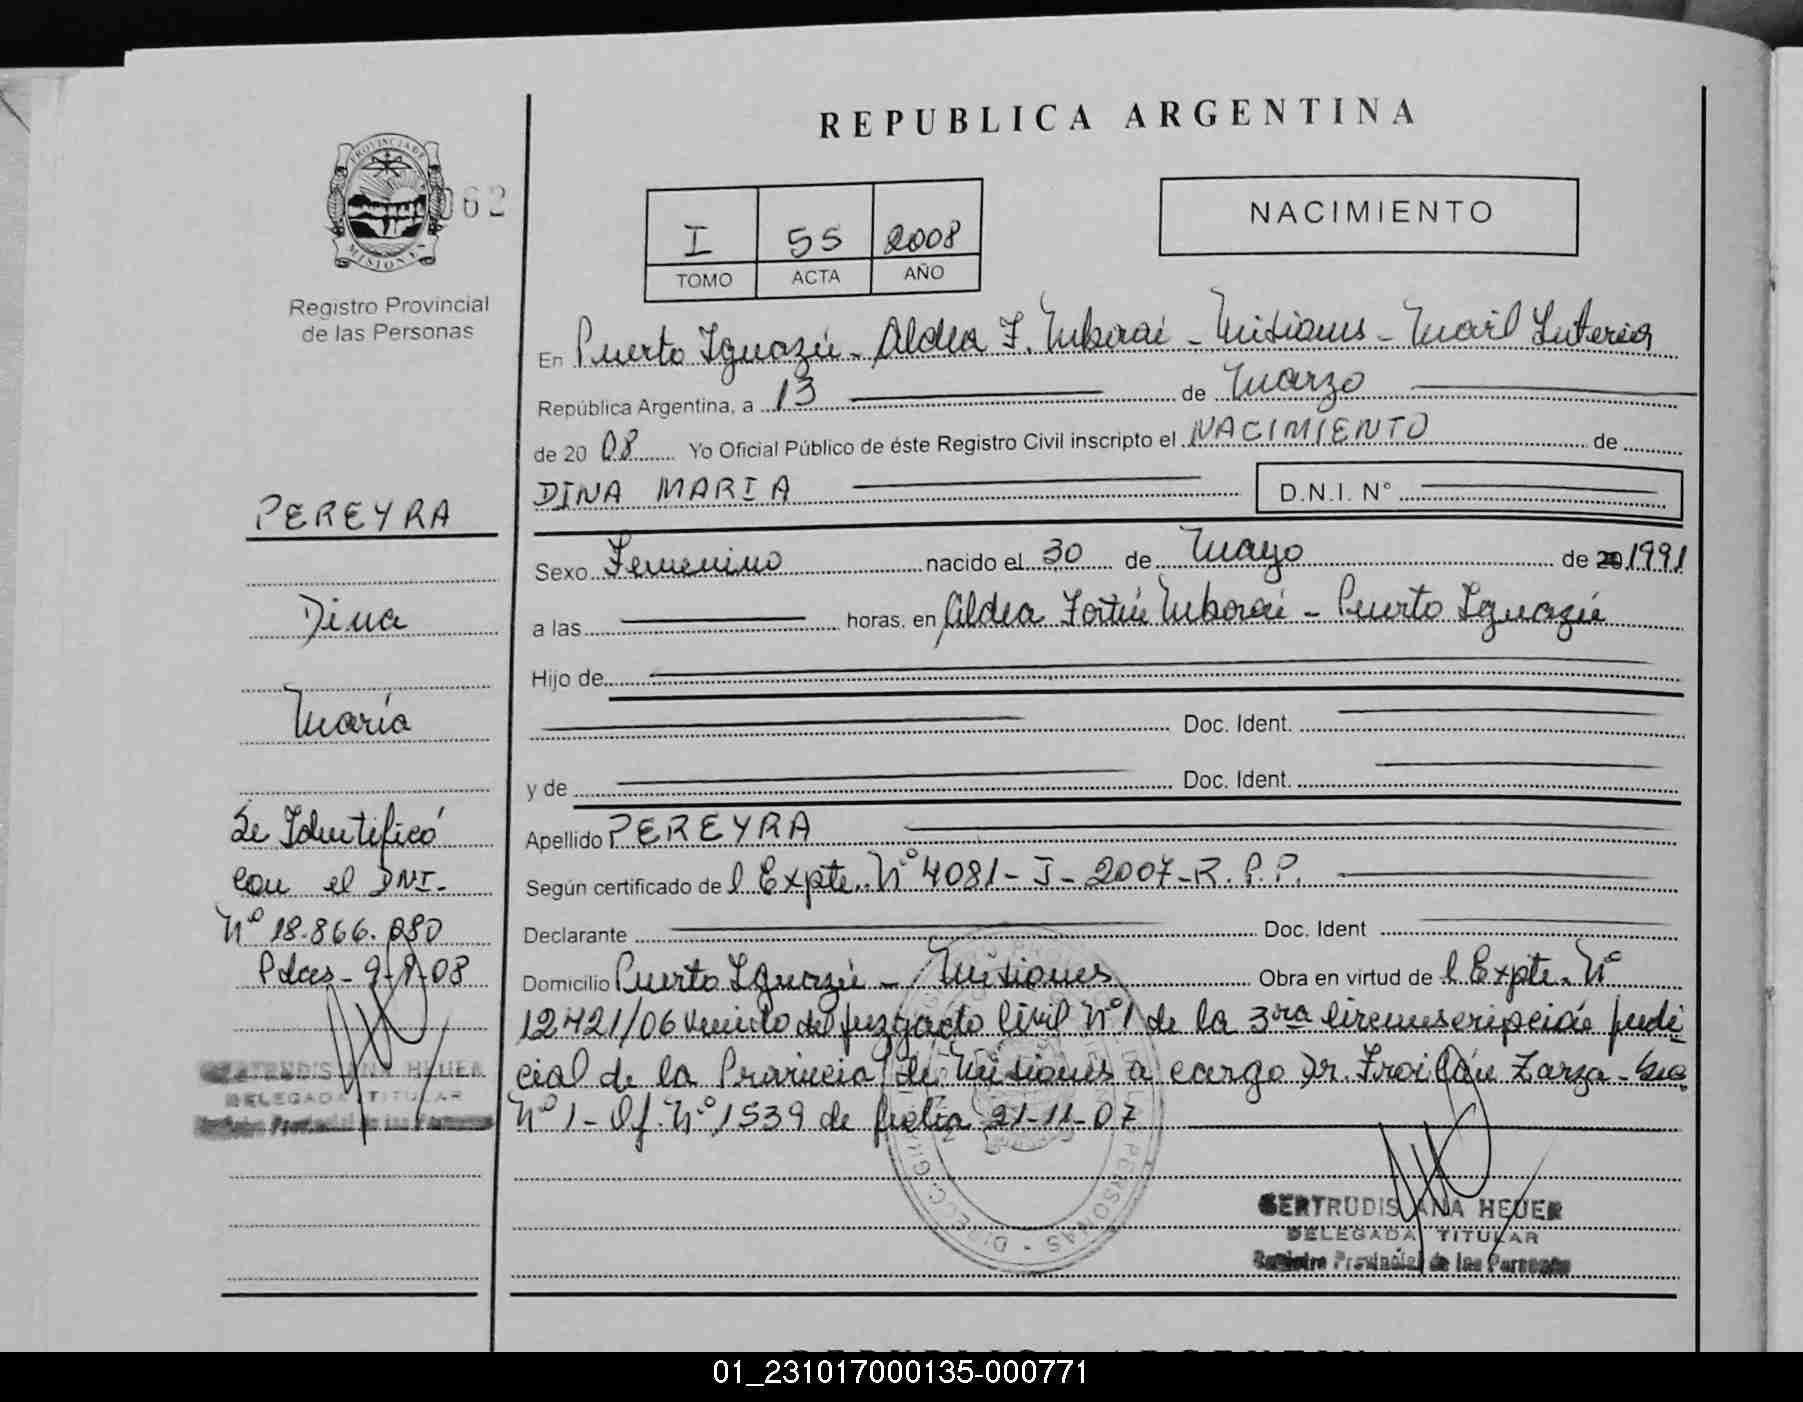 REPUBLICA ARGENTINA
PROVINCIA DE
MISIONES
062
Registro Provincial
de las Personas
I 55 2008
TOMO ACTA AÑO
NACIMIENTO
En Puerto Iguazú - Aldea F. Mborai - Misiones - Mail Interior
República Argentina, a 13 de Marzo
de 20 08 Yo Oficial Público de éste Registro Civil inscripto el NACIMIENTO de
DINA MARIA D.N.I. N°
Sexo Femenino nacido el 30 de Mayo de 20 1991
a las horas, en Aldea Fortín Mborai - Puerto Iguazú
Hijo de
Doc. Ident.
y de Doc. Ident.
Apellido PEREYRA
Según certificado de l Expte. N° 4081-J-2007-R.P.P.
Declarante Doc. Ident
Domicilio Puerto Iguazú - Misiones Obra en virtud de l Expte. N°
12421/06 venido del Juzgado Civil N°1 de la 3ra Circunscripción judi
cial de la Provincia de Misiones a cargo Dr. Froilán Zarza -
N° 1 - Of. N° 1539 de fecha 21-11-07
GERTRUDIS ANA HEUER
DELEGADA TITULAR
Registro Provincial de las Personas
PEREYRA
Dina
María
Se Identificó
con el DNI.
N° 18.866.080
Pdas - 9-9-08
GERTRUDIS ANA HEUER
DELEGADA TITULAR
Registro Provincial de las Personas
REPUBLICA ARGENTINA
01_231017000135-000771